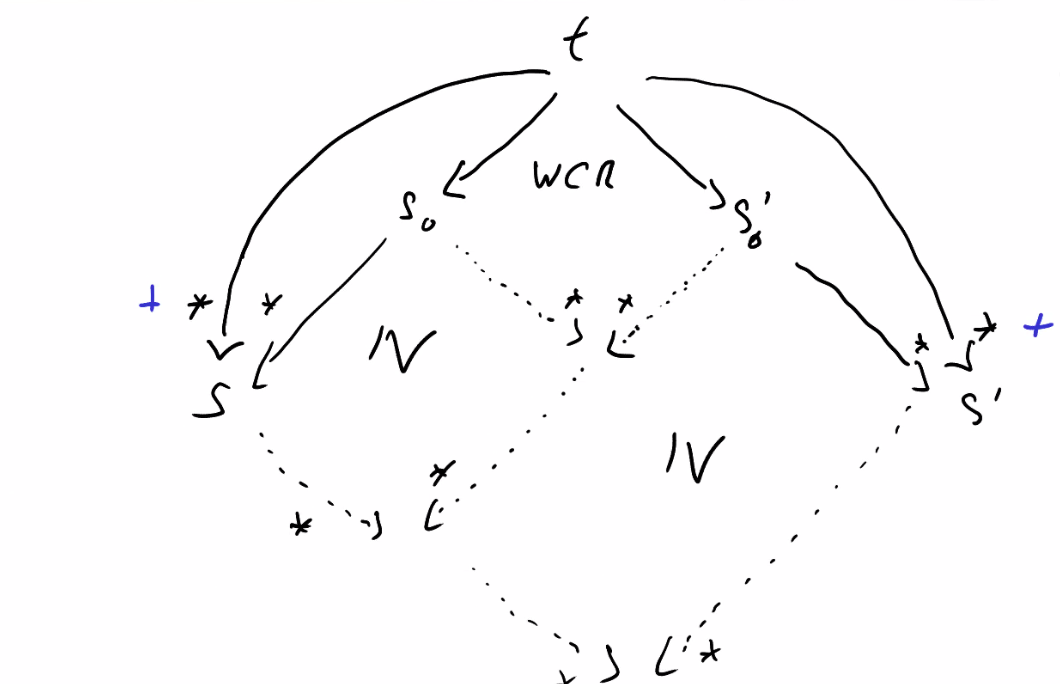 t
WCR
s₀ s₀'
* *
+ * * IV * * +
s s'
IV
*
*
* *